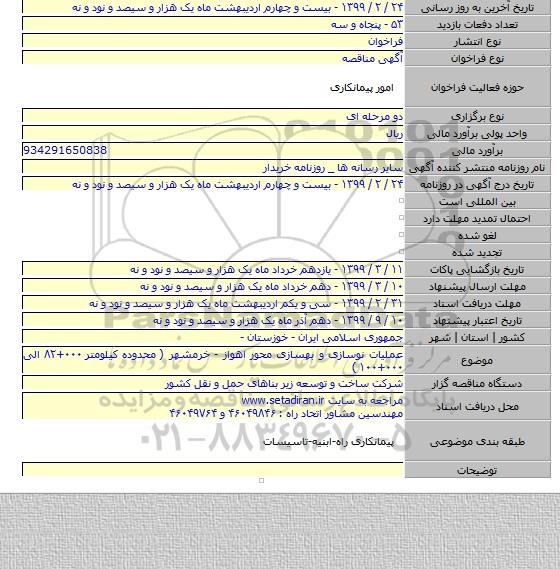 تاریخ آخرین به روز رسانی ۲۴ / ۲ / ۱۳۹۹ - بیست و چهارم اردیبهشت ماه یک هزار و سیصد و نود و نه
تعداد دفعات بازدید ۵۳ - پنجاه و سه
نوع انتشار فراخوان
نوع فراخوان آگهی مناقصه
حوزه فعالیت فراخوان امور پیمانکاری
نوع برگزاری دو مرحله ای
واحد پولی برآورد مالی ریال
برآورد مالی 934291650838
نام روزنامه منتشر کننده آگهی سایر رسانه ها _ روزنامه خریدار
تاریخ درج آگهی در روزنامه ۲۴ / ۲ / ۱۳۹۹ - بیست و چهارم اردیبهشت ماه یک هزار و سیصد و نود و نه
بین المللی است
احتمال تمدید مهلت دارد
لغو شده
تجدید شده
تاریخ بازگشایی پاکات ۱۱ / ۳ / ۱۳۹۹ - یازدهم خرداد ماه یک هزار و سیصد و نود و نه
مهلت ارسال پیشنهاد ۱۰ / ۳ / ۱۳۹۹ - دهم خرداد ماه یک هزار و سیصد و نود و نه
مهلت دریافت اسناد ۳۱ / ۲ / ۱۳۹۹ - سی و یکم اردیبهشت ماه یک هزار و سیصد و نود و نه
تاریخ اعتبار پیشنهاد ۱۰ / ۹ / ۱۳۹۹ - دهم آذر ماه یک هزار و سیصد و نود و نه
کشور | استان | شهر جمهوری اسلامی ایران - خوزستان -
موضوع عملیات نوسازی و بهسازی محور اهواز - خرمشهر ( محدوده کیلومتر ۰۰۰+۸۲ الی
۰۰۰+۱۰۰ )
دستگاه مناقصه گزار شرکت ساخت و توسعه زیر بناهای حمل و نقل کشور
محل دریافت اسناد مراجعه به سایت www.setadiran.ir
مهندسین مشاور اتحاد راه : ۴۶۰۴۹۸۴۶ و ۴۶۰۴۹۷۶۴
طبقه بندی موضوعی پیمانکاری راه-ابنیه-تاسیسات
توضیحات
۰۲۱-۸۸۳۴۹۶۷۰-۵